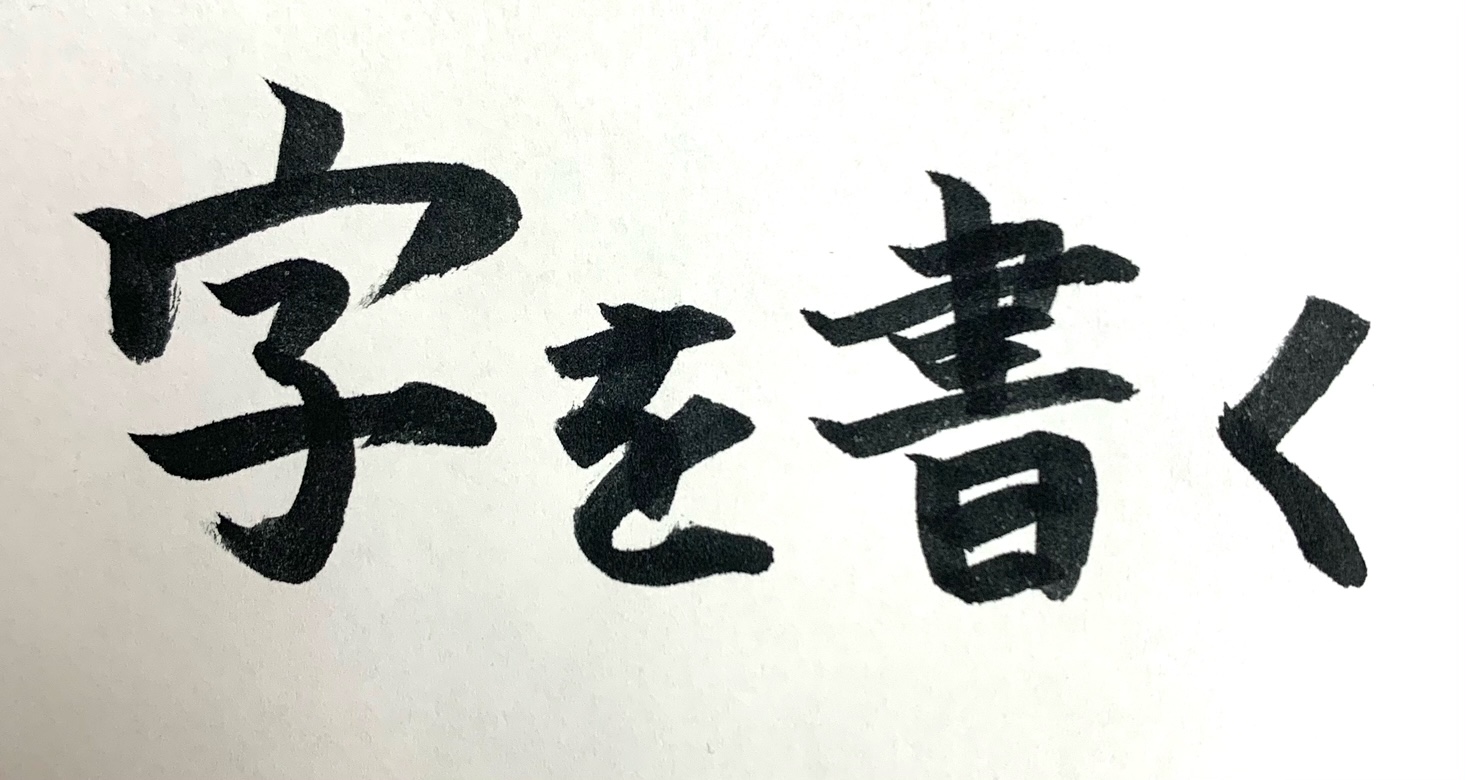 字を書く